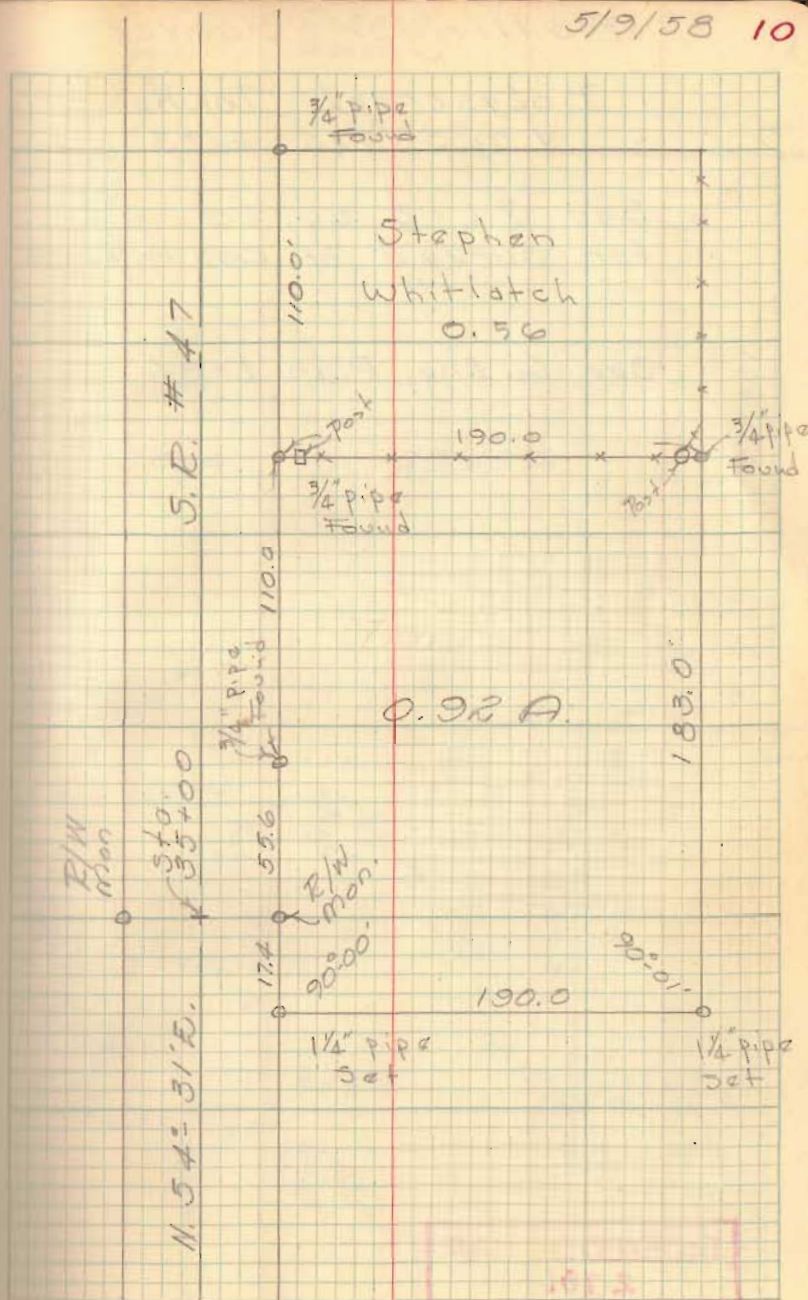 5/9/58 10
3/4" pipe
Found
Stephen
Whitlatch
0.56
110.0'
S.R. # 47
Post
190.0
3/4" pipe
Found
3/4" pipe
Found
Post
110.0
3/4" pipe
Found
0.92 A.
183.0'
R/W
Mon
Sta.
35+00
55.6
R/W
Mon.
17.4
90°-00'
90°-01'
190.0
1 1/4" pipe
Set
1 1/4" pipe
Set
N. 54°-31' E.